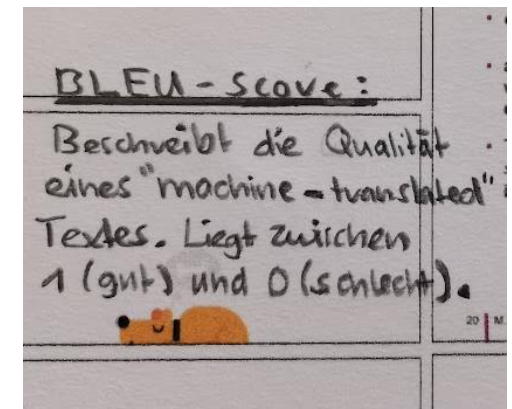 BLEU-Score:
Beschreibt die Qualität
eines "machine-translated"
Textes. Liegt zwischen
1 (gut) und 0 (schlecht).
20 M